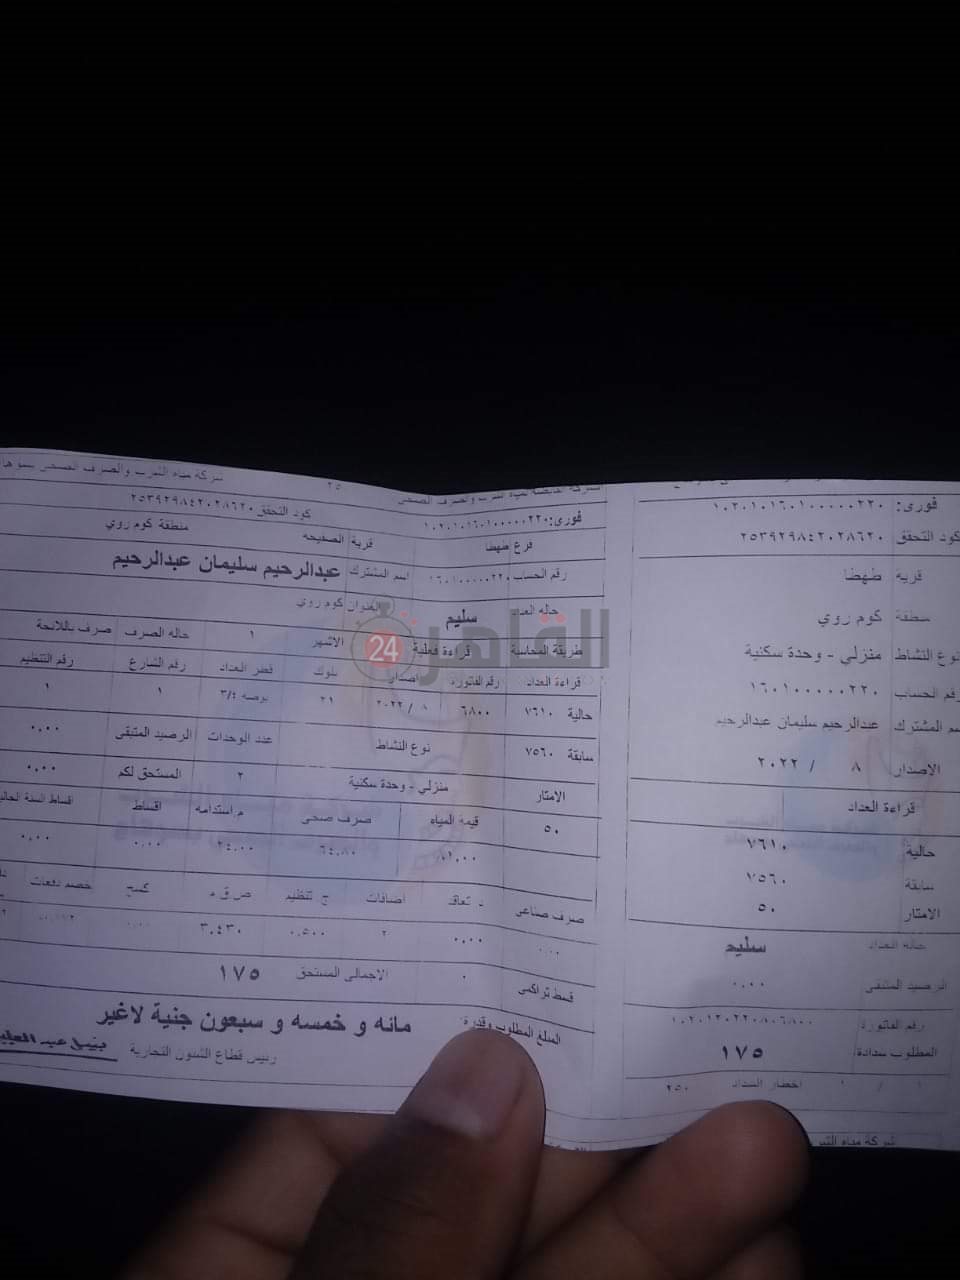 فورى: ١٠٢٠١٠١٦٠١٠٠٠٠٠٢٢٠
كود التحقق ٢٥٣٩٢٩٨٤٢٠٢٨٦٢٠
قرية طهطا
منطقة كوم روي
نوع النشاط منزلي - وحدة سكنية
رقم الحساب ١٦٠١٠٠٠٠٠٢٢٠
اسم المشترك عبدالرحيم سليمان عبدالرحيم
الاصدار ٨ / ٢٠٢٢
قراءة العداد
حالية ٧٦١٠
سابقة ٧٥٦٠
الامتار ٥٠
حاله العداد سليم
الرصيد المتبقى ٠.٠٠
رقم الفاتورة
المطلوب سدادة ١٧٥
شركة مياه الشرب والصرف الصحى ٢٥
فورى: ١٠٢٠١٠١٦٠١٠٠٠٠٠٢٢٠ كود التحقق ٢٥٣٩٢٩٨٤٢٠٢٨٦٢٠
فرع طهطا قرية الصفيحه منطقة كوم روي
رقم الحساب ١٦٠١٠٠٠٠٠٢٢٠ اسم المشترك عبدالرحيم سليمان عبدالرحيم
حاله العداد سليم العنوان كوم روي
طريقة المحاسبة قراءة فعلية الاشهر ١ حاله الصرف صرف باللائحة
قراءة العداد رقم الفاتورة اصدار بلوك قطر العداد رقم الشارع رقم التنظيم
حالية ٧٦١٠ ٦٨٠٠ ٨ / ٢٠٢٢ ٢١ بوصه ٣/٤ ١ ١
سابقة ٧٥٦٠ نوع النشاط عدد الوحدات الرصيد المتبقى ٠.٠٠
الامتار منزلي - وحدة سكنية ٢ المستحق لكم ٠.٠٠
٥٠ قيمة المياه صرف صحى م.استدامه اقساط اقساط السنة
٦٤.٨٠ ٢٤.٠٠ ٠.٠٠ ٠.٠٠
صرف صناعى د تعاقد اضافات ج تنظيم ص ق م كسح خصم دفعات
٠.٠٠ ٠.٠٠ ٢ ٠.٥٠٠ ٣.٤٣٠ ٠.٠٠
قسط تراكمى ٠ الاجمالى المستحق ١٧٥
المبلغ المطلوب وقدرة: مائه و خمسه و سبعون جنية لاغير
رئيس قطاع الشئون التجارية
القاهرة 24